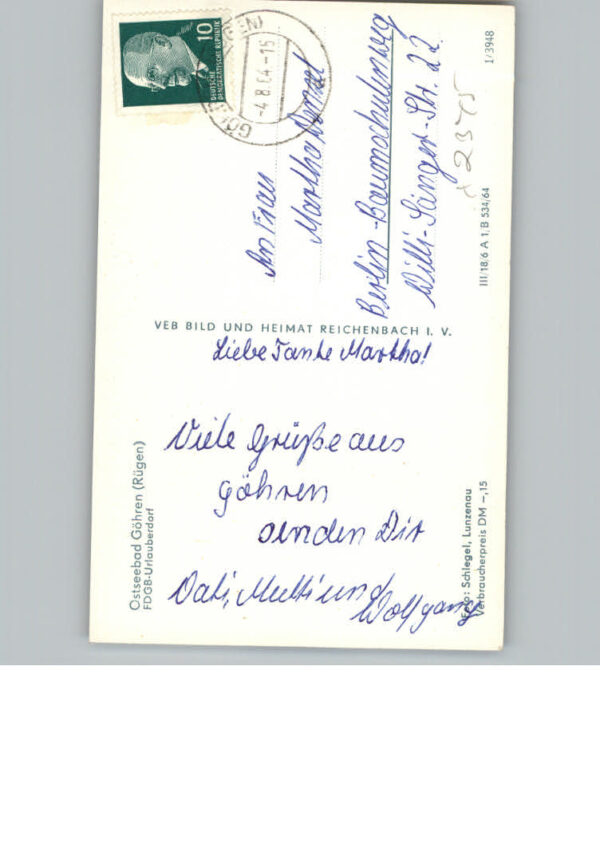 Ostseebad Göhren (Rügen)
FDGB-Urlauberdorf
Liebe Tante Martha!
Viele Grüße aus
Göhren
senden Dir
Vati, Mutti und
Wolfgang
VEB BILD UND HEIMAT REICHENBACH I. V.
Foto: Schlegel, Lunzenau
Verbraucherpreis DM -,15
10
DEUTSCHE
DEMOKRATISCHE REPUBLIK
-4.8.64-15
An Frau
Martha
Berlin-Baumschulenweg
Willi-Sänger-Str. 22
2375
III/18/6 A 1, B 534/64
1/3948